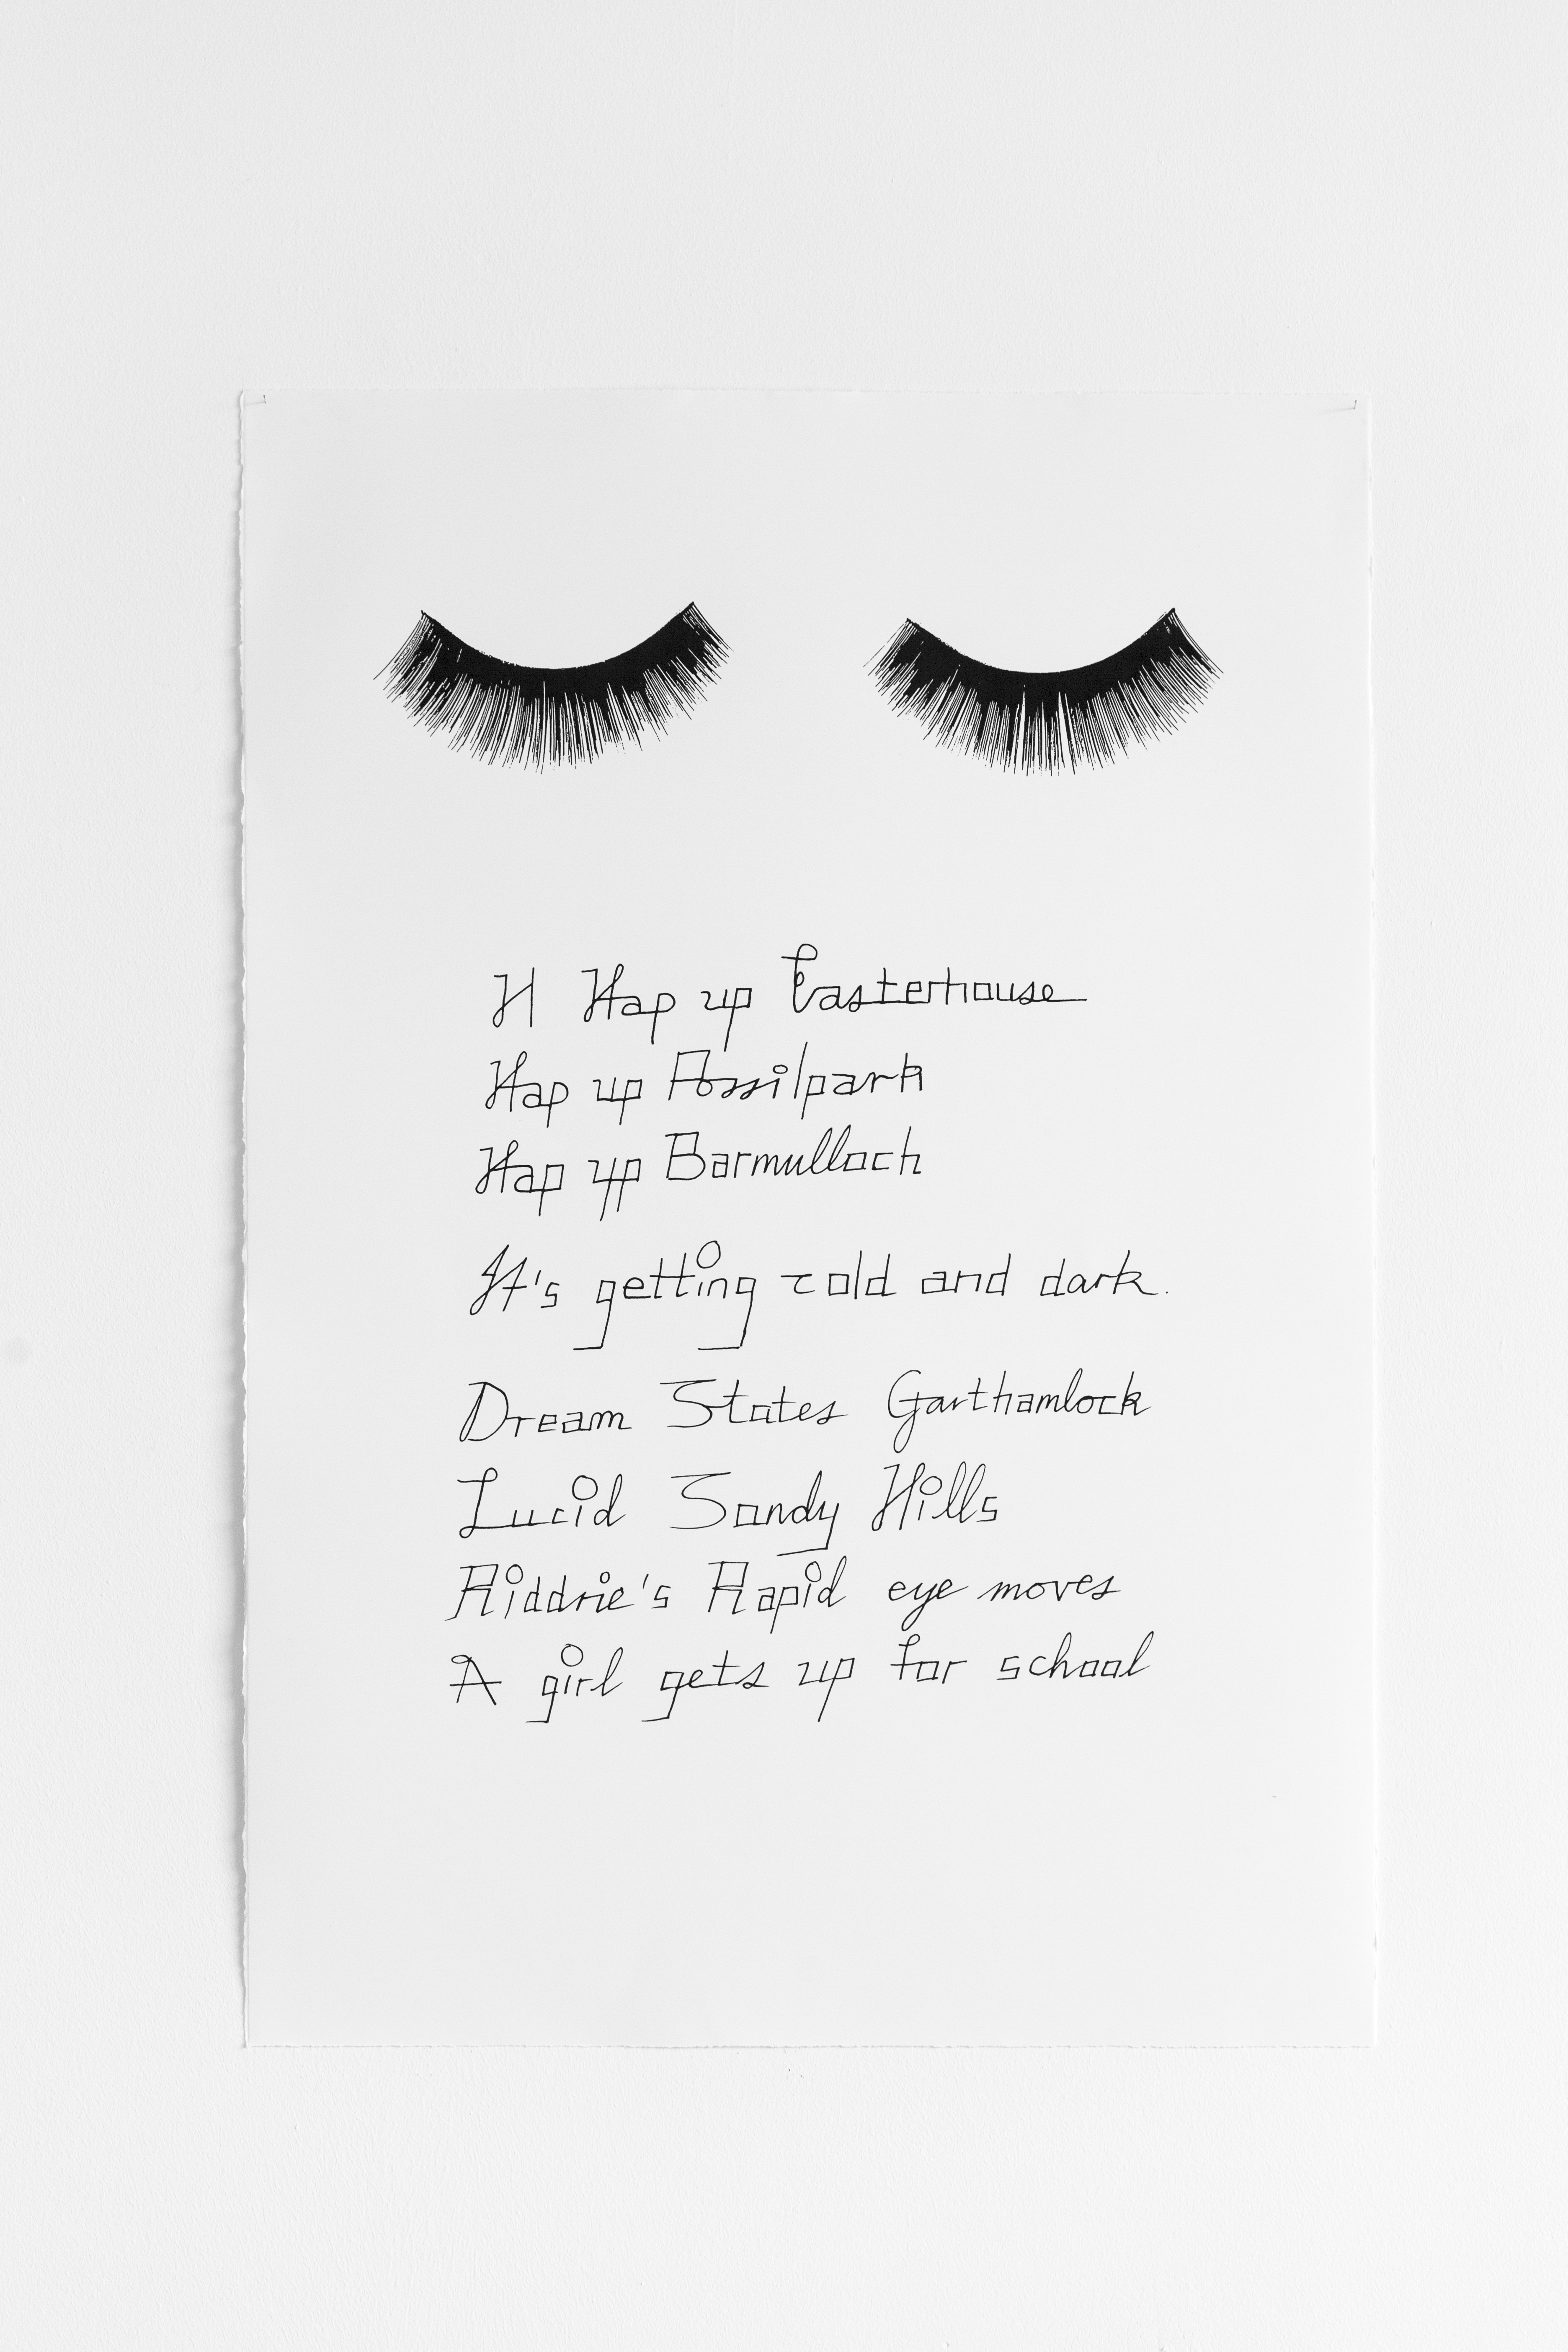 H Hap up Easterhouse
Hap up Possilpark
Hap up Barmulloch
It's getting cold and dark.
Dream States Garthamlock
Lucid Sandy Hills
Riddrie's Rapid eye moves
A girl gets up for school